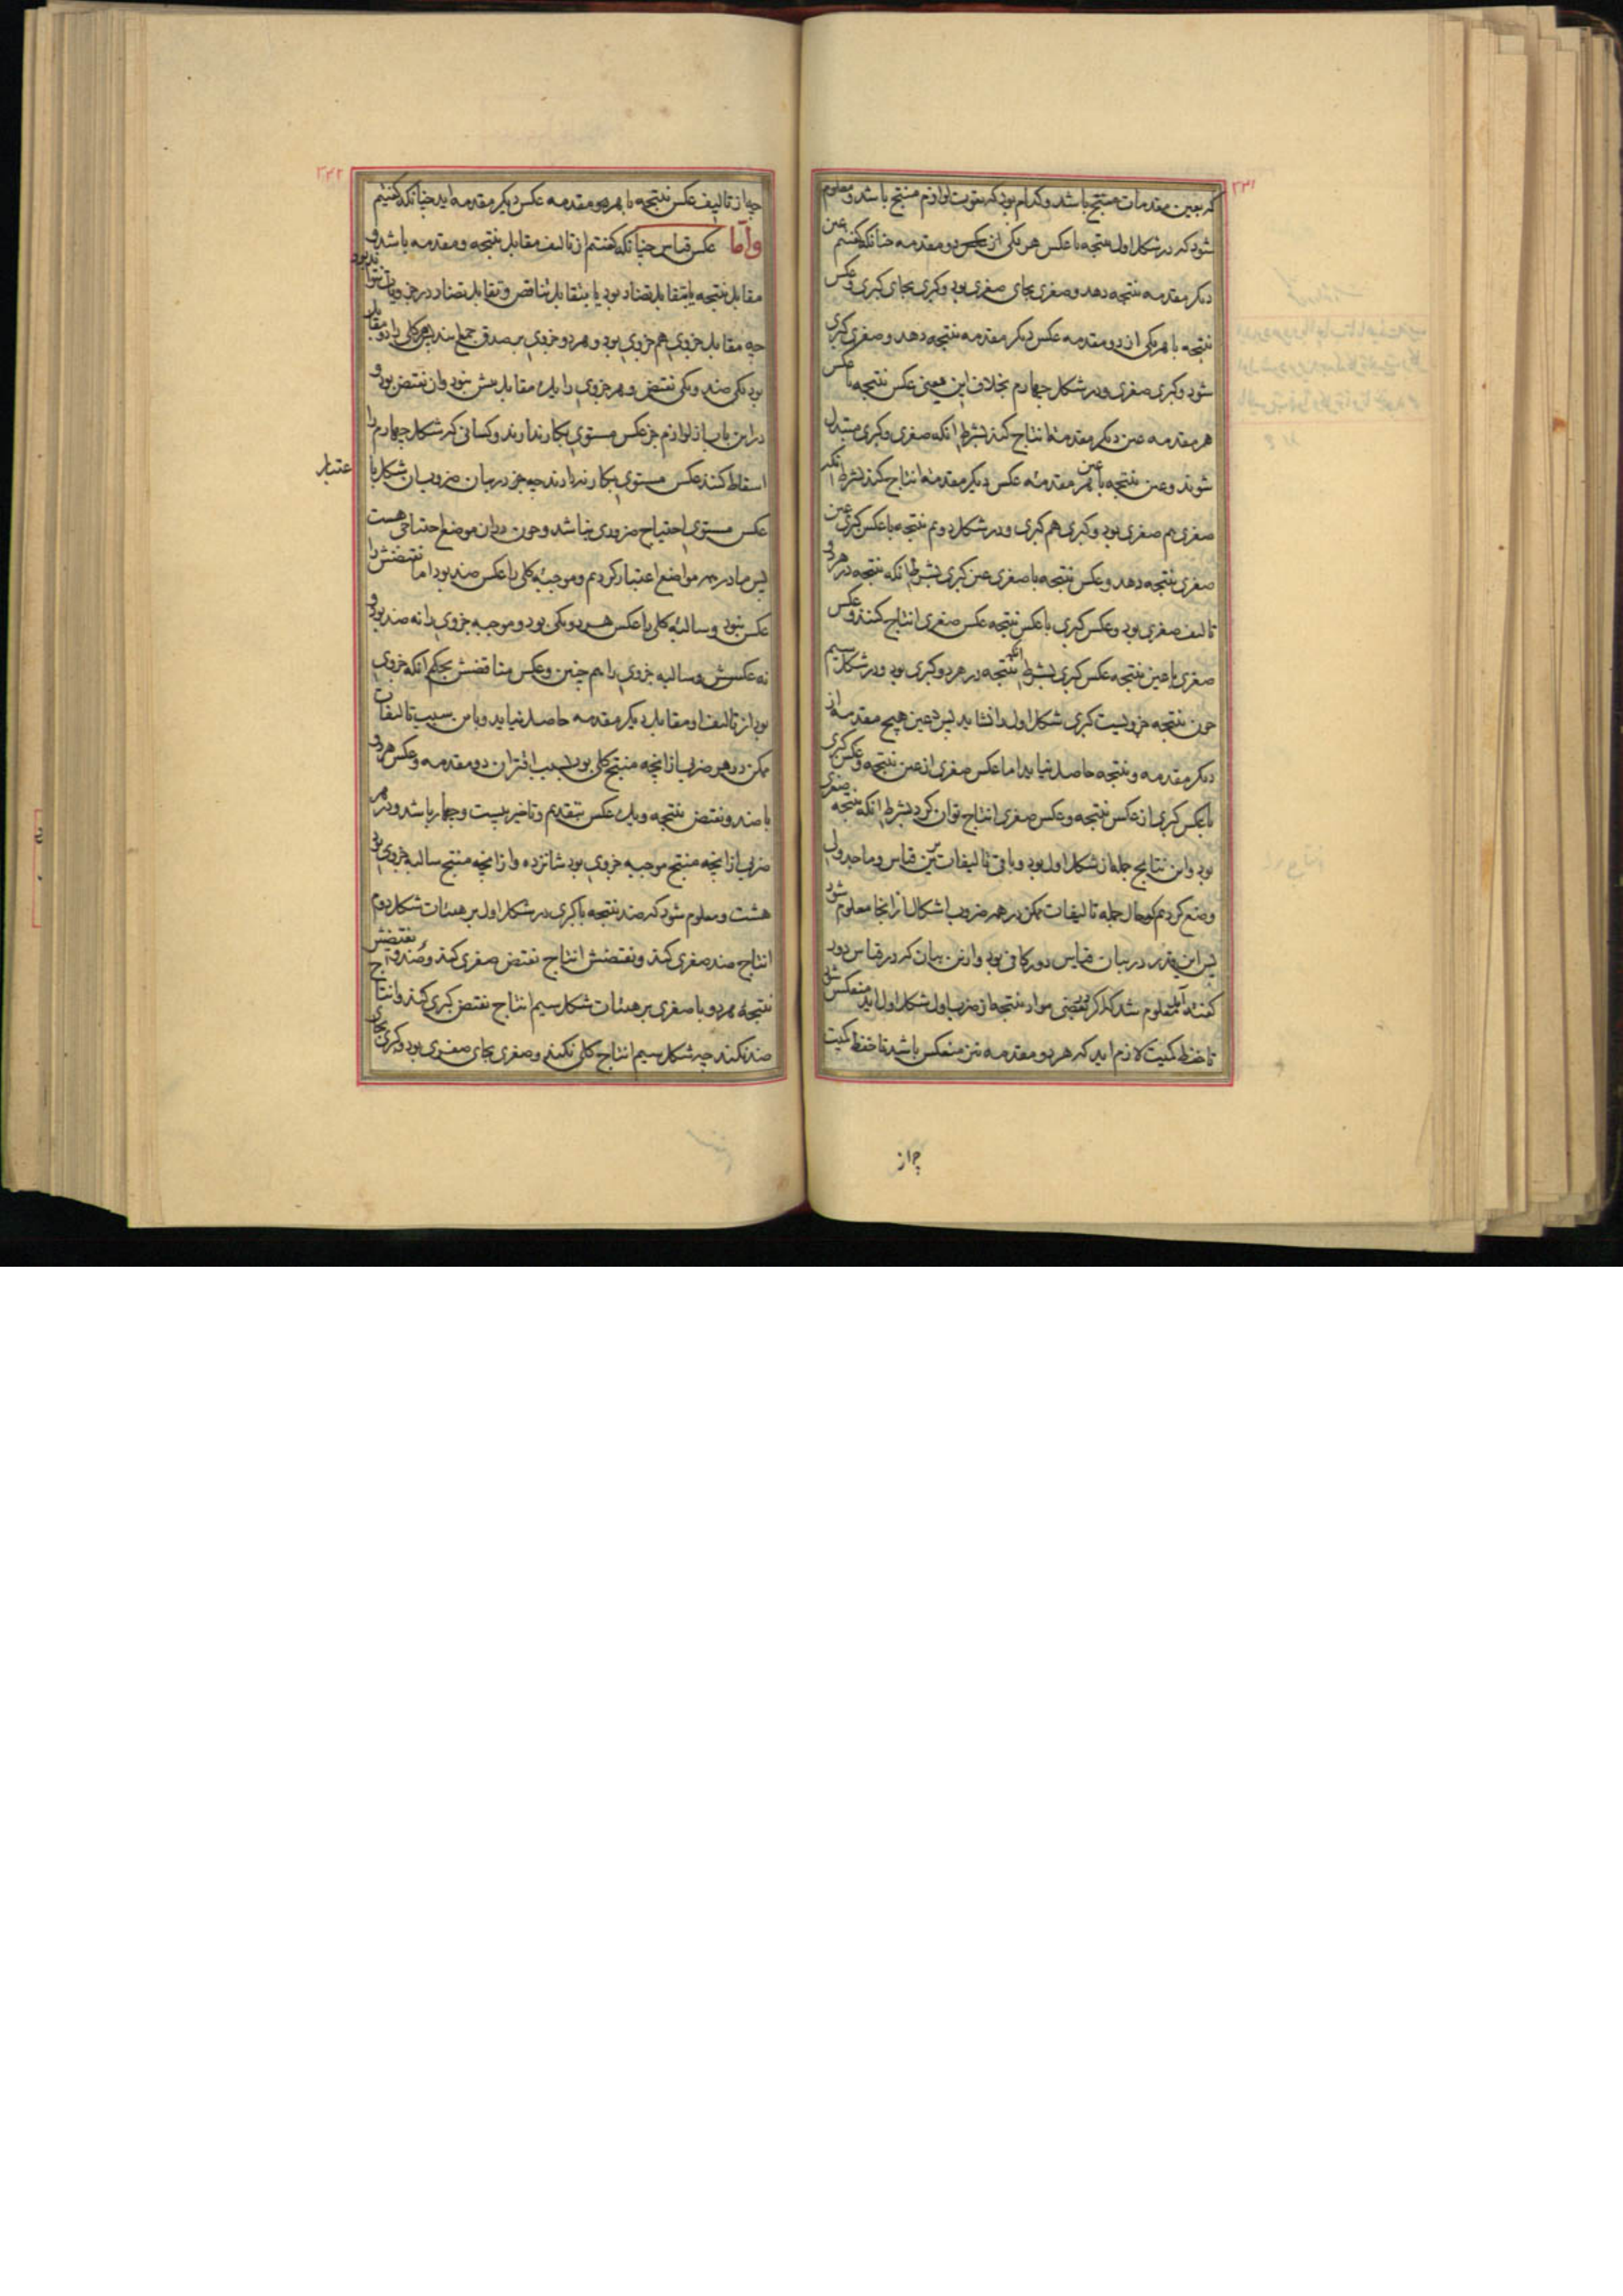 ۲۳۱
که بعین مقدمات منتج باشد و کدام بود که بقوت لوازم منتج باشد و معلوم
شود که در شکل اول نتیجه با عکس هر یکی از دو مقدمه چنانکه گفتیم عین
دیگر مقدمه نتیجه دهد و صغری بجای صغری بود و کبری بجای کبری و عکس
نتیجه با هر یکی از دو مقدمه عکس دیگر مقدمه نتیجه دهد و صغری کبری
شود و کبری صغری و در شکل چهارم بخلاف این معنی عکس نتیجه با عکس
هر مقدمه عین دیگر مقدمه انتاج کند بشرط آنکه صغری و کبری متبدل
شوند و عین نتیجه با عین هر مقدمه عکس دیگر مقدمه انتاج کند بشرط آنکه
صغری هم صغری بود و کبری هم کبری و در شکل دوم نتیجه با عکس کبری عین
صغری نتیجه دهد و عکس نتیجه با صغری عین کبری بشرط انکه نتیجه در هر دو
تالیف صغری بود و عکس کبری با عکس نتیجه عکس صغری انتاج کند و عکس
صغری با عین نتیجه عکس کبری بشرط انکه نتیجه در هر دو کبری بود و در شکل سیم
چون نتیجه جزویست کبری شکل اول را نشاید پس عین هیچ مقدمه از
دیگر مقدمه و نتیجه حاصل نیاید اما عکس صغری از عین نتیجه و عکس کبری
یا عکس کبری از عکس نتیجه و عکس صغری انتاج توان کرد بشرط انکه نتیجه صغری
بود و این نتایج جمله از شکل اول بود و باقی تالیفات برین قیاس و ما جدولی
وضع کردیم که حال جمله تالیفات ممکن در همه ضروب اشکال از انجا معلوم شود
پس این قدر در بیان قیاس دور کافی بود و ازین بیان که در قیاس دور
گفته آمد معلوم شد که اگر در بعضی مواد نتیجه از ضرب اول شکل اول اید منعکس شی
تا حفظ کمیت لازم اید که هر دو مقدمه نیز منعکس باشد تا حفظ کمیت
چه از
۲۳۲
چه از تالیف عکس نتیجه با هر دو مقدمه عکس دیگر مقدمه اید چنانکه گفتیم
و اما عکس قیاس چنانکه گفتیم از تالیف مقابل نتیجه و مقدمه باشد و
مقابل نتیجه یا بتقابل تضاد بود یا بتقابل تناقض و تقابل تضاد در جزویات نتواند بود
چه مقابل جزوی هم جزوی بود و هر دو جزوی بر صدق جمع ایند پس هر کلی را دو مقابل
بود یکی ضد و یکی نقیض و هر جزوی را یک مقابل بیش نبود و ان نقیض بود و
درین باب از لوازم جز عکس مستوی بکار ندارند و کسانی که شکل چهارم را
اسقاط کنند عکس مستوی بکار ندارند چه جز در بیان ضروب ان شکل با
عتبار
عکس مستوی احتیاج ضروری نباشد و چون دران موضع احتیاجی هست
پس ما در همه مواضع اعتبار کردیم و موجبه کلی را عکس ضد بود اما نقیضش را
عکس نبود و سالبه کلی را عکس هر دو یکی بود و موجبه جزوی را نه ضد بود و
نه عکسش و سالبه جزوی را هم چنین و عکس مناقضش بحکم انکه جزوی
بود از تالیف او مقابل دیگر مقدمه حاصل نیاید و باین سبب تالیفات
ممکن در هر ضربی از انچه منتج کلی بود بسبب اقتران دو مقدمه و عکس هر دو
با ضد و نقیض نتیجه و یک عکس بتقدیم و تاخیر بیست و چهار باشد و در هر
ضربی از انچه منتج موجبه جزوی بود شانزده و از انچه منتج سالبه جزوی بود
هشت و معلوم شود که ضد نتیجه با کبری در شکل اول بر هیئات شکل دوم
انتاج ضد صغری کند و نقیضش انتاج نقیض صغری کند و ضد و نقیضش
نتیجه هر دو با صغری بر هیئات شکل سیم انتاج نقیض کبری کند و انتاج
ضد نکند چه شکل سیم انتاج کلی نکند و صغری بجای صغری بود و کبری بجای